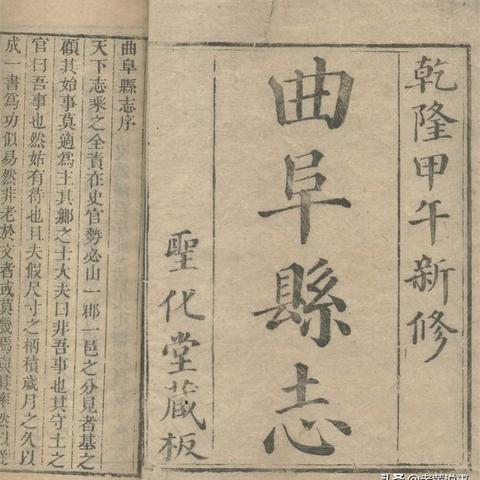 乾隆甲午新修
曲阜縣志
聖化堂藏板
曲阜縣志序
天下志乘之全責在史官勢必山一郡一邑之分見者基之
顧其始事莫適爲主其鄉之士大夫曰非吾事也其守土之
官曰吾事也然姑有待也且夫假尺寸之柄積歲月之久以
成一書爲功似易然非老於文者或莫幾焉與其率然以從